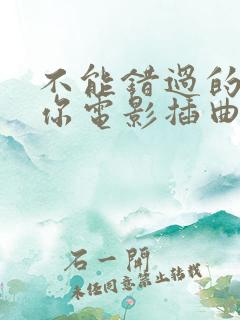 不能错過的
你電影插曲
石一閗
未任同意禁止转载